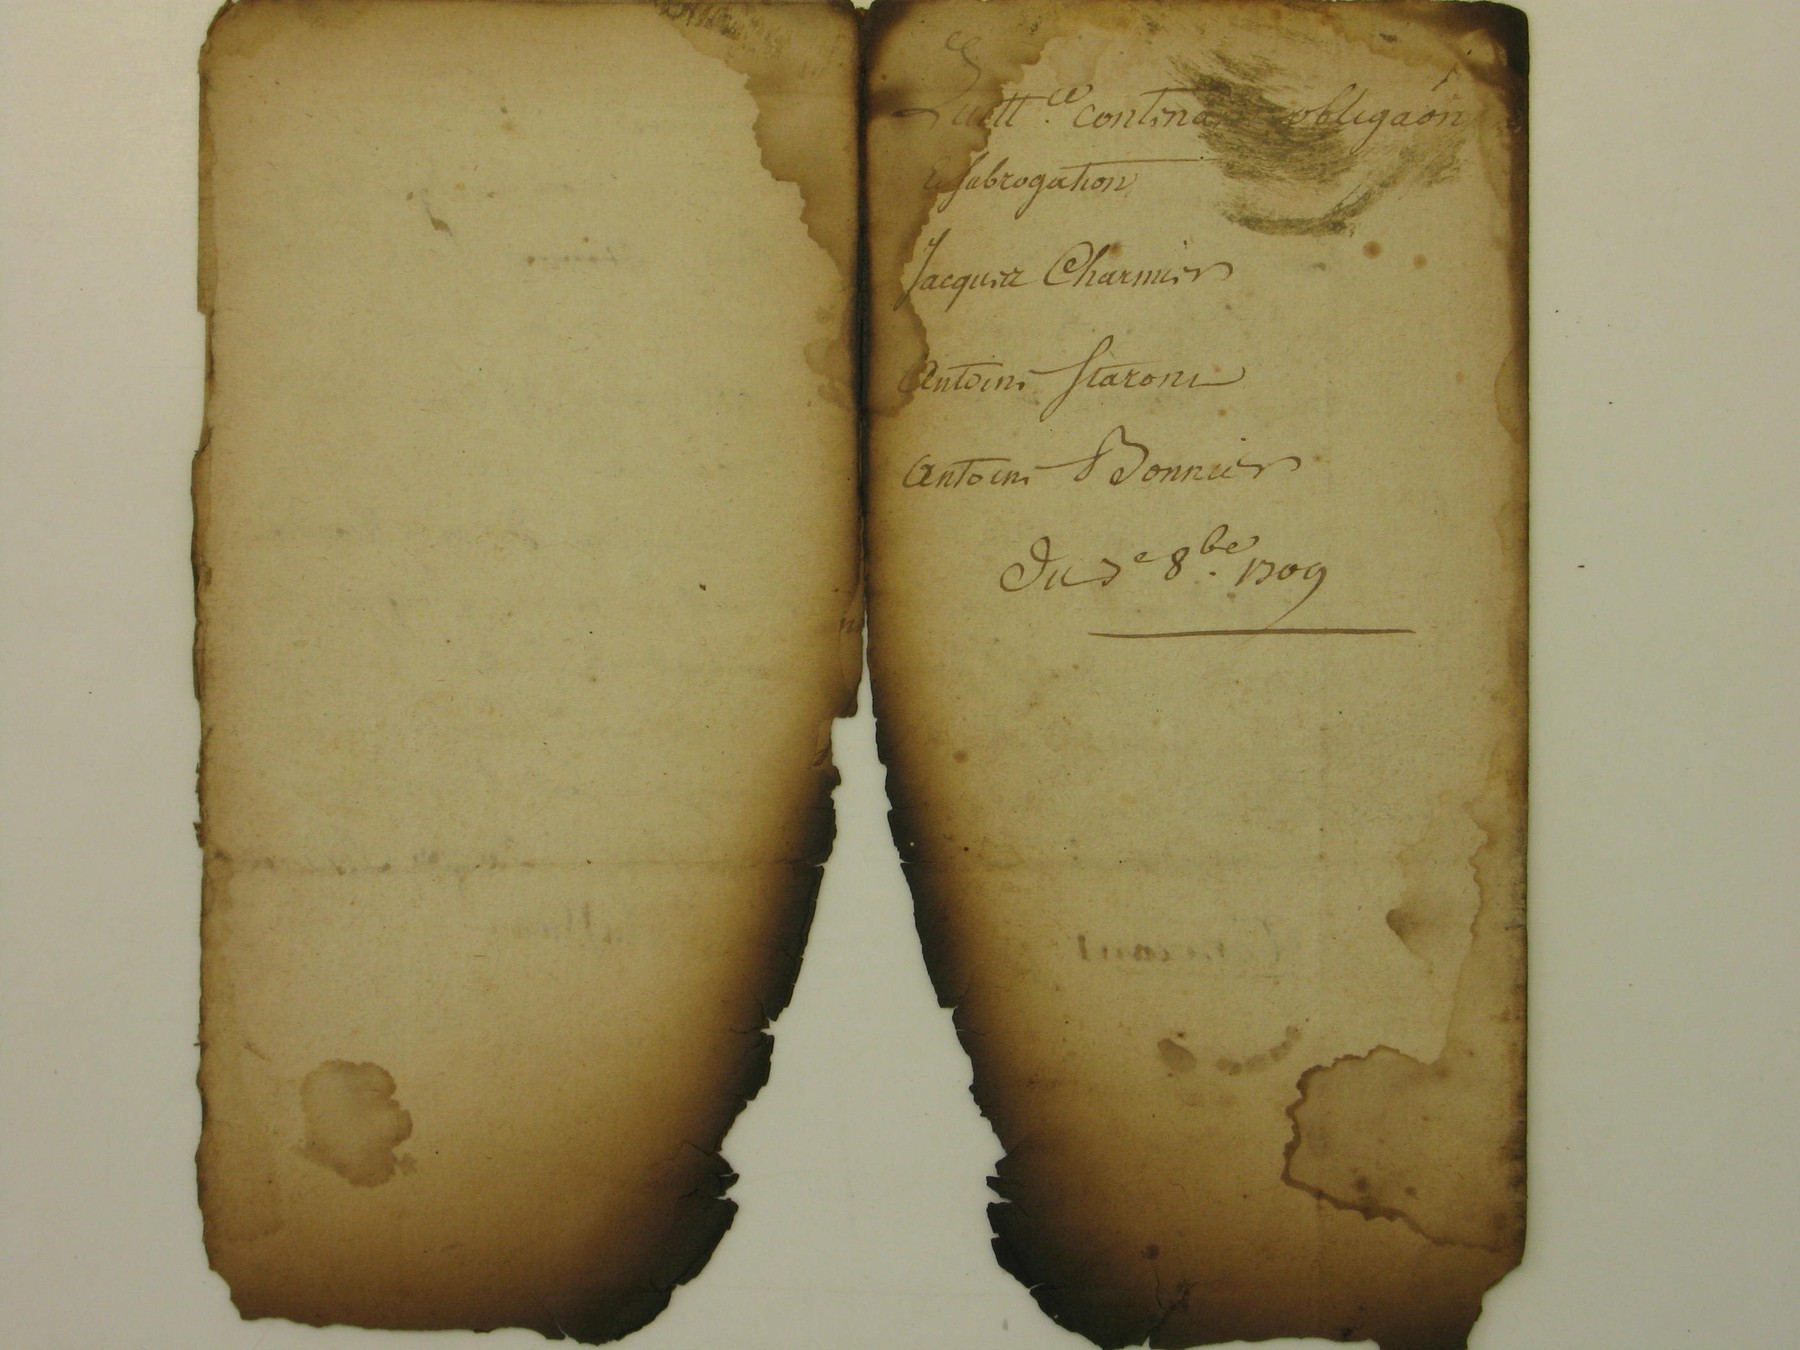 Quitt.ce contenant obligaôn
& subrogation
Jacques Charmier
Antoine Starone
Antoine Bonnier
Du 7e 8.bre 1709